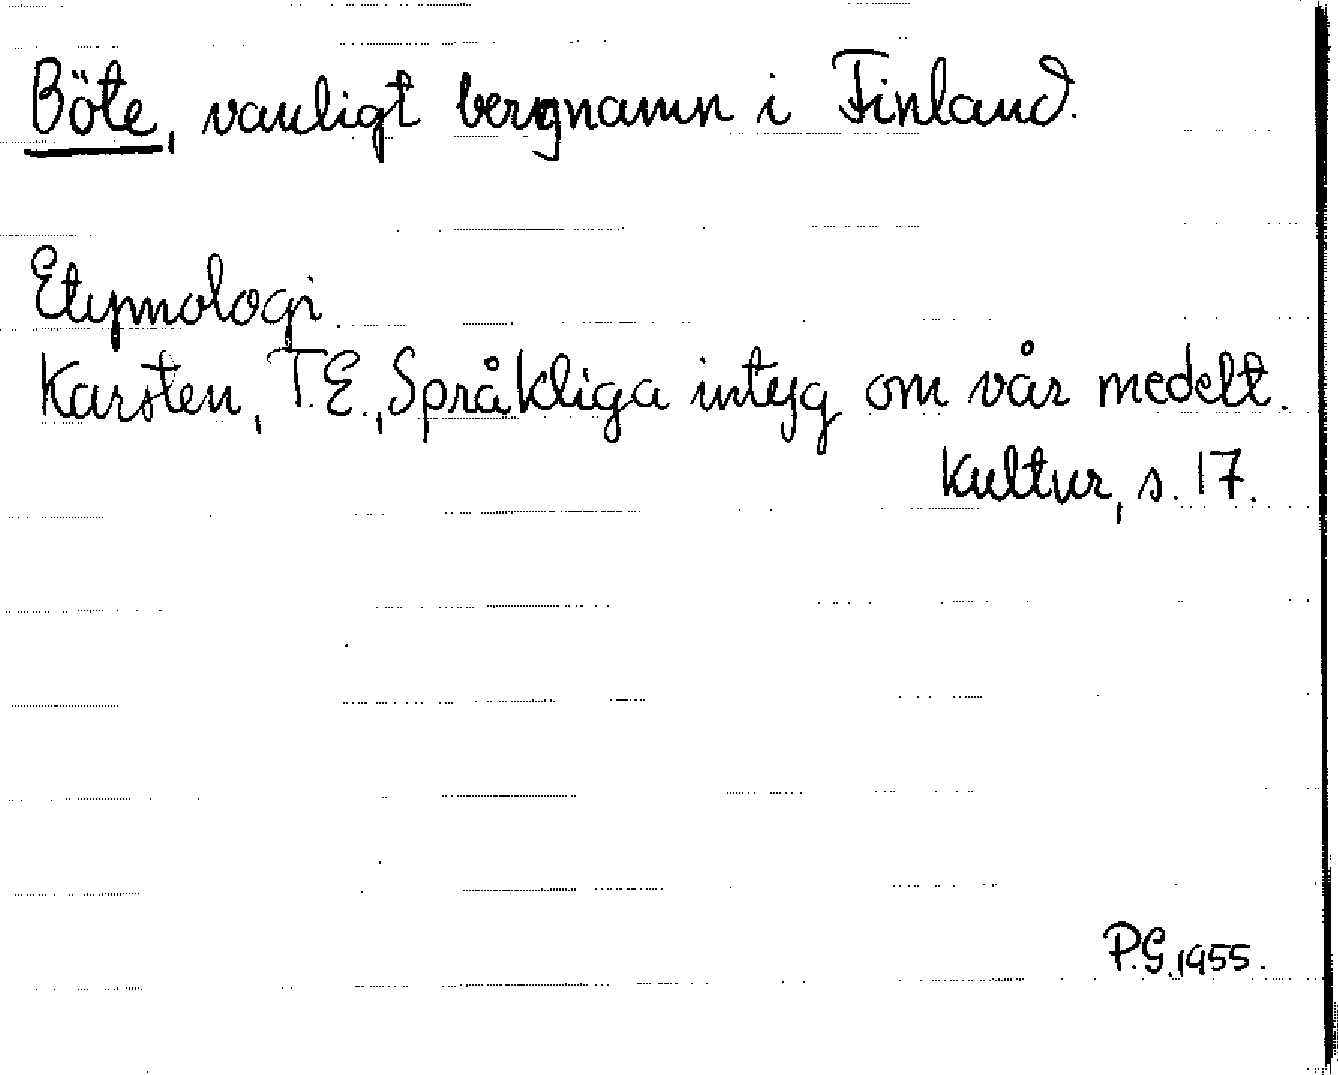 Böte, vanligt bergnamn i Finland.
Etymologi
Karsten, T.E., Språkliga intyg om vår medelt.
kultur, s. 17.
P.G. 1955.